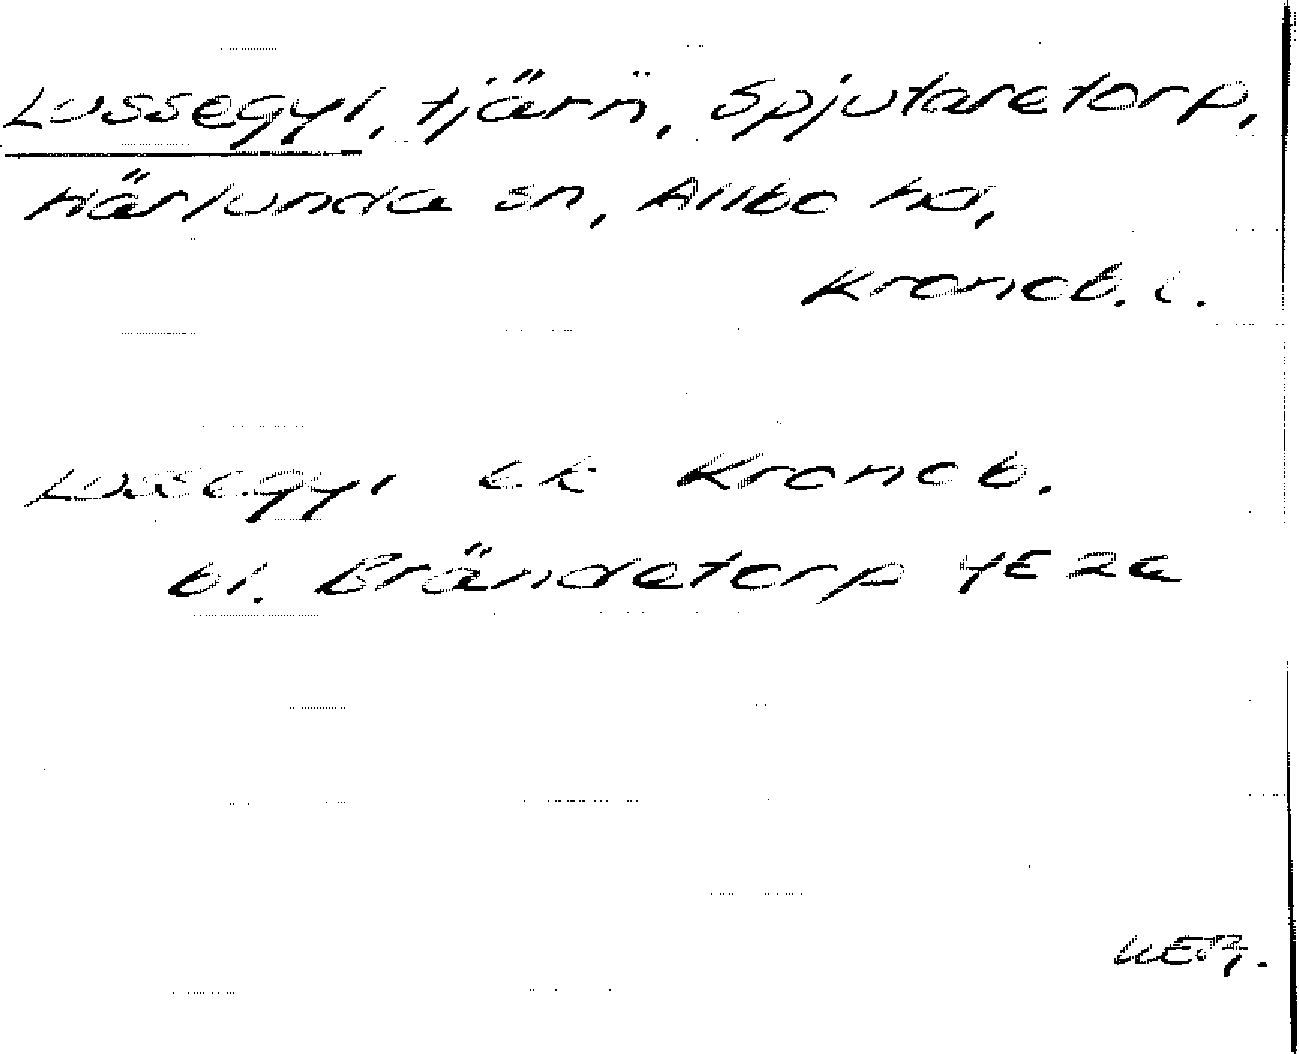 Lussegyl, tjärn, Spjutaretorp,
Härlunda sn, Allbo hd,
Kronob. l.
Lussegyl ek Kronob.
bl. Brändetorp 4E 2e